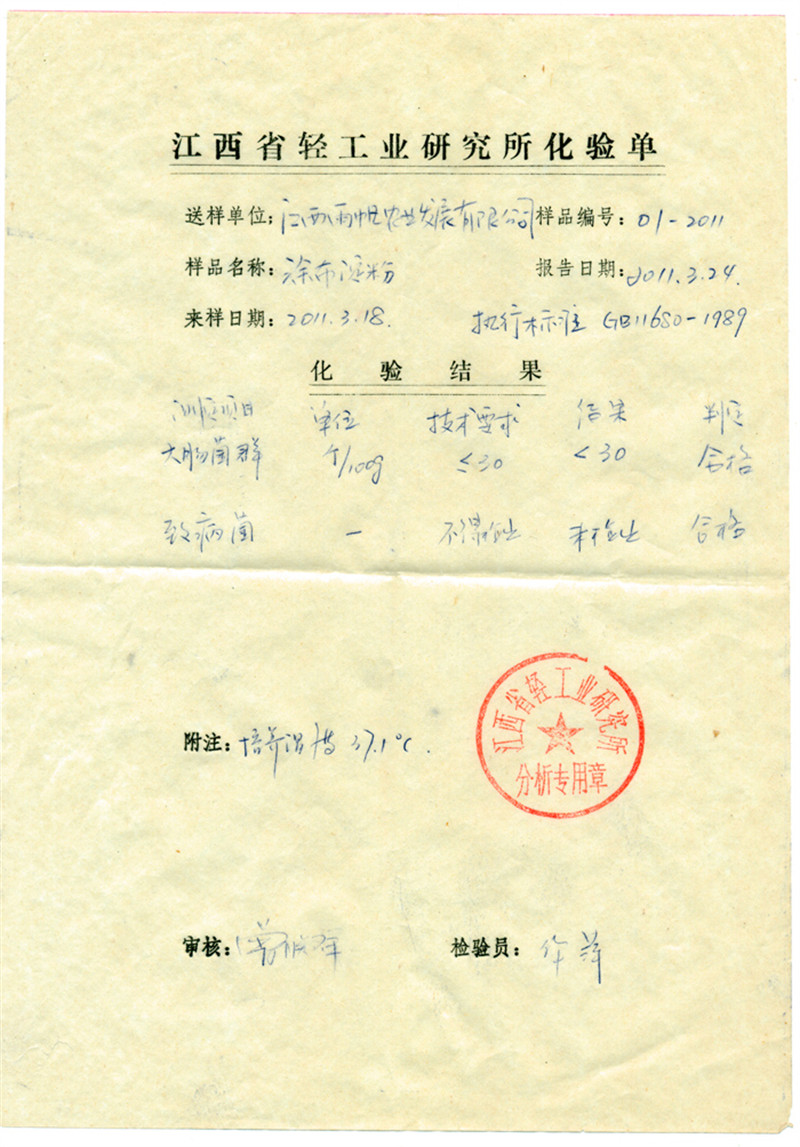 江西省轻工业研究所化验单
送样单位：江西雨帆农业发展有限公司 样品编号：01-2011
样品名称：涂布淀粉 报告日期：2011.3.24.
来样日期：2011.3.18. 执行标准 GB11680-1989
化验结果
测定项目 单位 技术要求 结果 判定
大肠菌群 个/100g ≤30 <30 合格
致病菌 — 不得检出 未检出 合格
江西省轻工业研究所
分析专用章
附注：培养温度 37.1℃.
审核：
检验员：